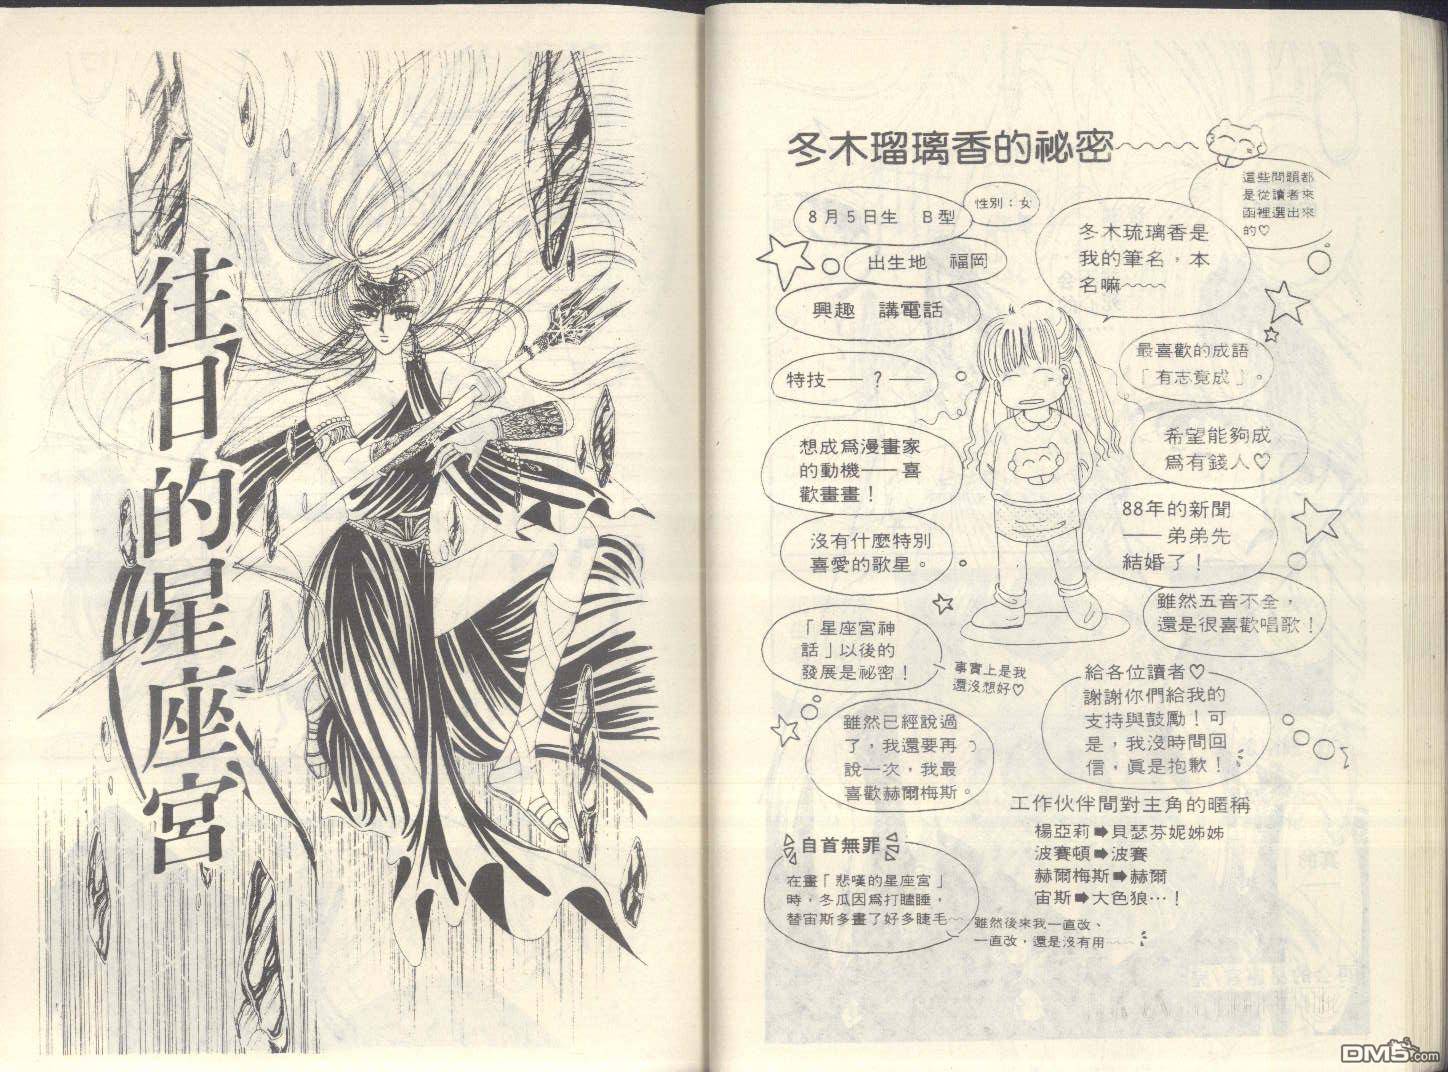 往日的星座宮
冬木瑠璃香的祕密
這些問題都
是從讀者來
函裡選出來
的♡
8月5日生 B型
性別：女
冬木琉璃香是
我的筆名，本
名嘛～～
出生地 福岡
興趣 講電話
最喜歡的成語
「有志竟成」。
特技——？——
希望能夠成
爲有錢人♡
想成爲漫畫家
的動機——喜
歡畫畫！
88年的新聞
——弟弟先
結婚了！
沒有什麼特別
喜愛的歌星。
雖然五音不全，
還是很喜歡唱歌！
「星座宮神
話」以後的
發展是祕密！
事實上是我
還沒想好♡
給各位讀者♡
謝謝你們給我的
支持與鼓勵！可
是，我沒時間回
信，眞是抱歉！
雖然已經說過
了，我還要再
說一次，我最
喜歡赫爾梅斯。
工作伙伴間對主角的暱稱
楊亞莉➡貝瑟芬妮姊姊
波賽頓➡波賽
赫爾梅斯➡赫爾
宙斯➡大色狼…！
自首無罪
在畫「悲嘆的星座宮」
時，冬瓜因爲打瞌睡，
替宙斯多畫了好多睫毛～
雖然後來我一直改、
一直改，還是沒有用～～
DM5.com